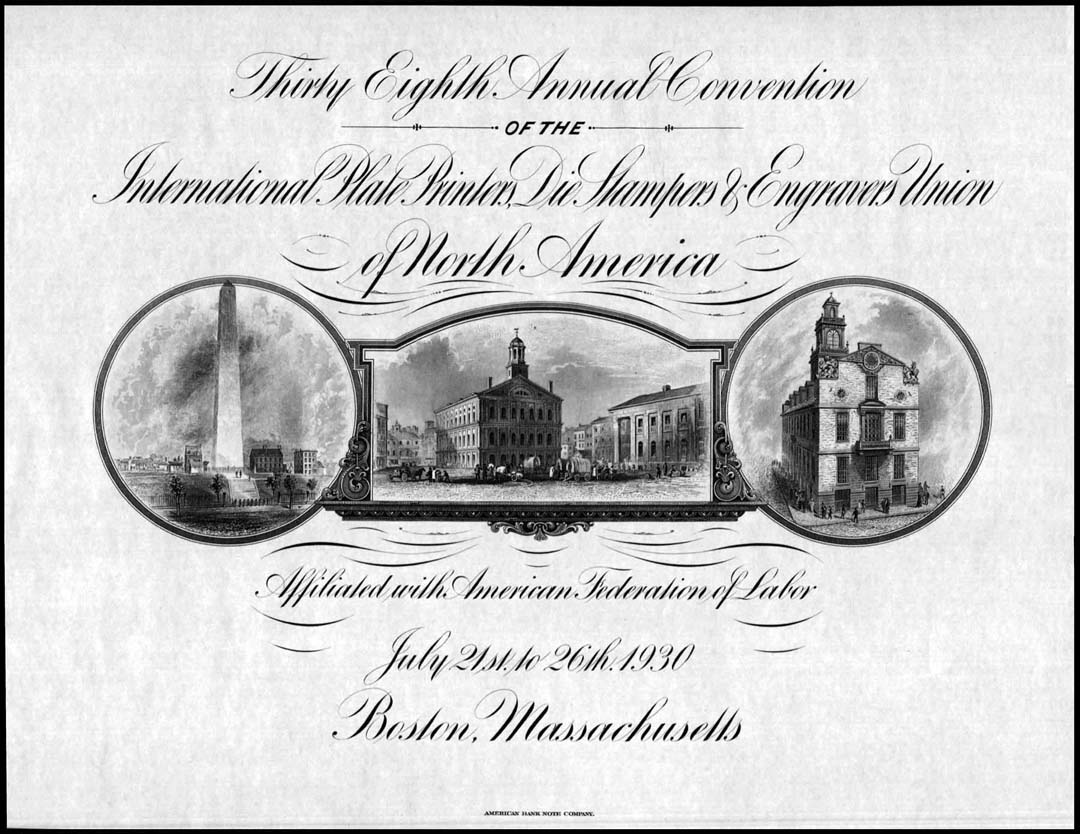 Thirty Eighth Annual Convention
OF THE
International Plate Printers, Die Stampers & Engravers Union
of North America
Affiliated with American Federation of Labor
July 21st, to 26th, 1930
Boston, Massachusetts
AMERICAN BANK NOTE COMPANY.